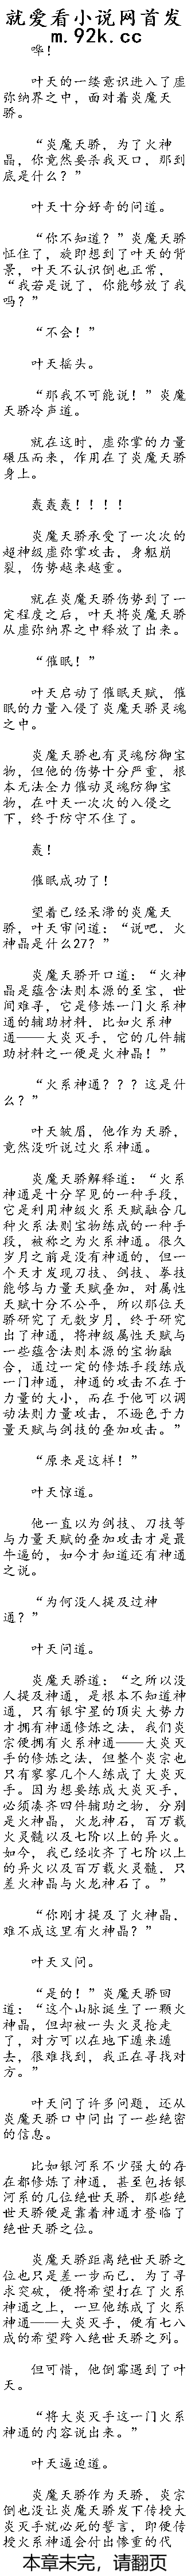 就爱看小说网首发
m.92k.cc
哗！
叶天的一缕意识进入了虚
弥纳界之中，面对着炎魔天
骄。
“炎魔天骄，为了火神
晶，你竟然要杀我灭口，那到
底是什么？”
叶天十分好奇的问道。
“你不知道？”炎魔天骄
怔住了，旋即想到了叶天的背
景，叶天不认识倒也正常，
“我若是说了，你能够放了我
吗？”
“不会！”
叶天摇头。
“那我不可能说！”炎魔
天骄冷声道。
就在这时，虚弥掌的力量
碾压而来，作用在了炎魔天骄
身上。
轰轰轰！！！！
炎魔天骄承受了一次次的
超神级虚弥掌攻击，身躯崩
裂，伤势越来越重。
就在炎魔天骄伤势到了一
定程度之后，叶天将炎魔天骄
从虚弥纳界之中释放了出来。
“催眠！”
叶天启动了催眠天赋，催
眠的力量入侵了炎魔天骄灵魂
之中。
炎魔天骄也有灵魂防御宝
物，但他的伤势十分严重，根
本无法全力催动灵魂防御宝
物，在叶天一次次的入侵之
下，终于防守不住了。
轰！
催眠成功了！
望着已经呆滞的炎魔天
骄，叶天审问道：“说吧，火
神晶是什么27？”
炎魔天骄开口道：“火神
晶是蕴含法则本源的至宝，世
间难寻，它是修炼一门火系神
通的辅助材料，比如火系神
通——大炎灭手，它的几件辅
助材料之一便是火神晶！”
“火系神通？？？这是什
么？”
叶天皱眉，他作为天骄，
竟然没听说过火系神通。
炎魔天骄解释道：“火系
神通是十分罕见的一种手段，
它是利用神级火系天赋融合几
种火系法则宝物练成的一种手
段，被称之为火系神通。很久
岁月之前是没有神通的，但一
个天才发现刀技、剑技、拳技
能够与力量天赋叠加，对属性
天赋十分不公平，所以那位天
骄研究了无数岁月，终于研究
出了神通，将神级属性天赋与
一些蕴含法则本源的宝物融
合，通过一定的修炼手段练成
一门神通，神通的攻击不在于
力量的大小，而在于他可以调
动法则力量攻击，不逊色于力
量天赋与剑技的叠加攻击。”
“原来是这样！”
叶天惊道。
他一直以为剑技、刀技等
与力量天赋的叠加攻击才是最
牛逼的，如今才知道还有神通
之说。
“为何没人提及过神
通？”
叶天问道。
炎魔天骄道：“之所以没
人提及神通，是根本不知道神
通，只有银宇星的顶尖大势力
才拥有神通修炼之法，我们炎
宗便拥有火系神通——大炎灭
手的修炼之法，但整个炎宗也
只有寥寥几个人练成了大炎灭
手。因为想要练成大炎灭手，
必须凑齐四件辅助之物，分别
是火神晶，火龙神石，百万载
火灵髓以及七阶以上的异火。
如今，我已经收齐了七阶以上
的异火以及百万载火灵髓，只
差火神晶与火龙神石了。”
“你刚才提及了火神晶，
难不成这里有火神晶？”
叶天又问。
“是的！”炎魔天骄回
道：“这个山脉诞生了一颗火
神晶，但却被一头火灵抢走
了，对方可以在地下遁来遁
去，很难找到，我正在寻找对
方。”
叶天问了许多问题，还从
炎魔天骄口中问出了一些绝密
的信息。
比如银河系不少强大的存
在都修炼了神通，甚至包括银
河系的几位绝世天骄，那些绝
世天骄便是靠着神通才登临了
绝世天骄之位。
炎魔天骄距离绝世天骄之
位也只是差一步而已，为了寻
求突破，便将希望打在了火系
神通之上，一旦他练成了火系
神通——大炎灭手，便有七八
成的希望跨入绝世天骄之列。
但可惜，他倒霉遇到了叶
天。
“将大炎灭手这一门火系
神通的内容说出来。”
叶天逼迫道。
炎魔天骄作为天骄，炎宗
倒也没让炎魔天骄发下传授大
炎灭手就必死的誓言，即便传
授火系神通会付出惨重的代
本章未完，请翻页